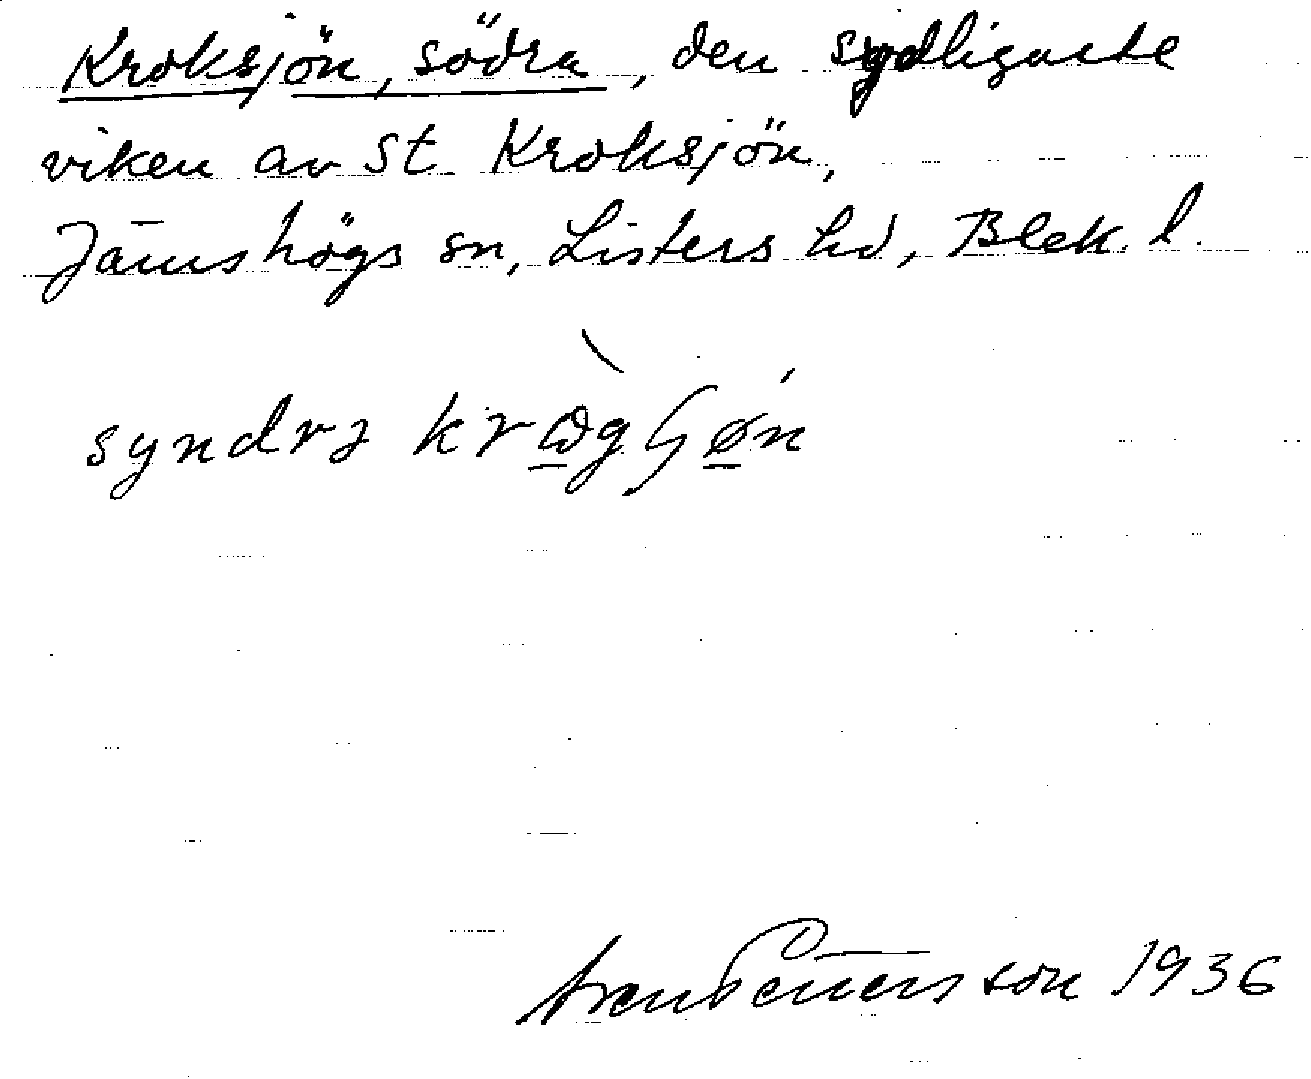 Kroksjön, södra, den sydligaste
viken av St. Kroksjön,
Jämshögs sn, Listers hd, Blek. l.
syndrə
Pettersson 1936